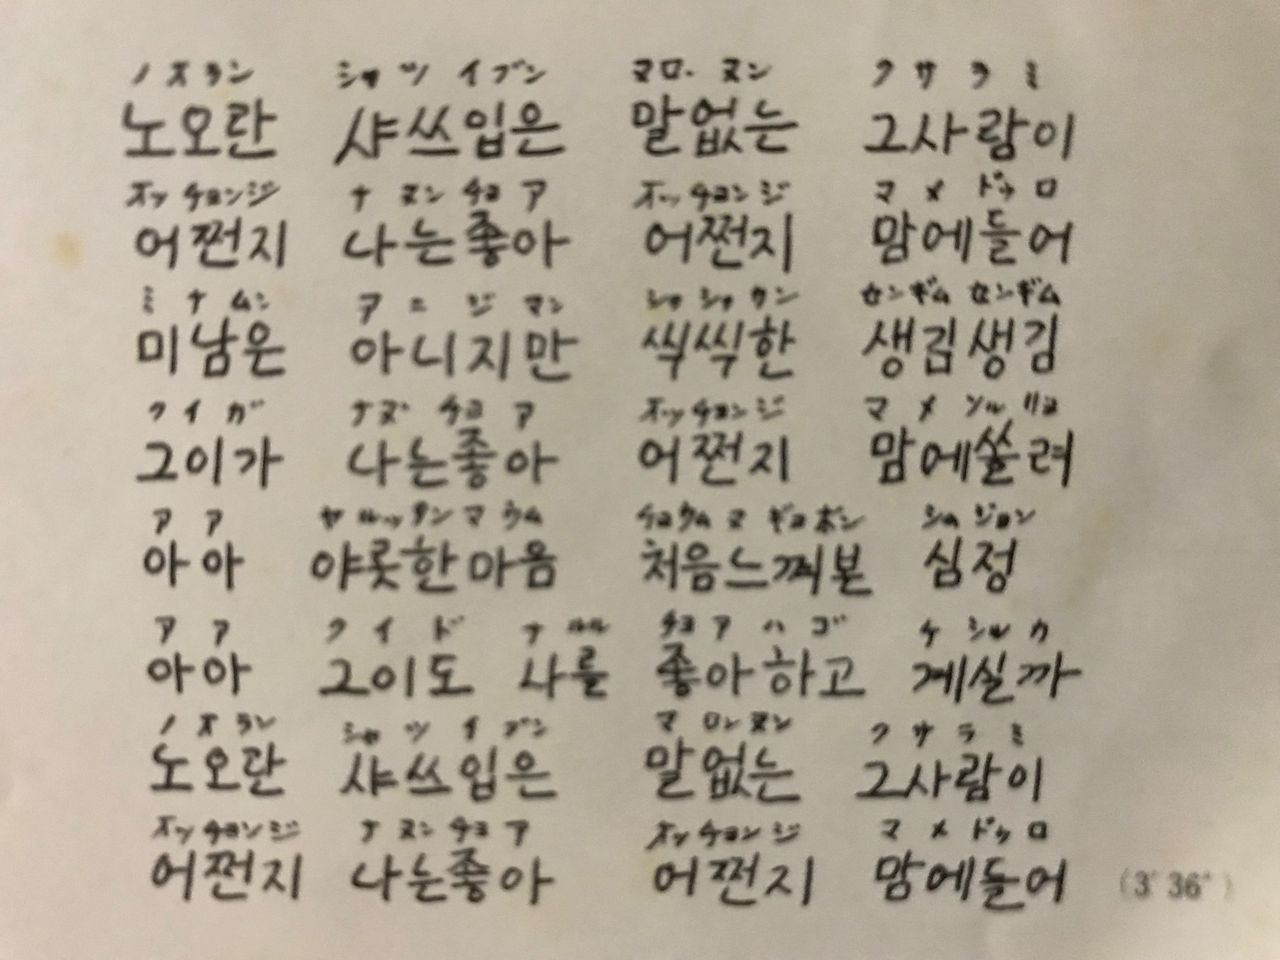 ノ オ ラン シャ ツ イ ブン マロ. ヌン ク サ ラ ミ
노오란 샤쓰입은 말없는 그사람이
オッ チョンジ ナ ヌン チョ ア オッ チョン ジ マ メ ドゥ ロ
어쩐지 나는좋아 어쩐지 맘에들어
ミ ナ ムン ア ニ ジ マン シャ シャ カン センギム センギム
미남은 아니지만 씩씩한 생김생김
ク イ ガ ナヌ チョ ア オッ チョンジ マ メ ソル リョ
그이가 나는좋아 어쩐지 맘에쏠려
ア ア ヤ ルッ タン マ ウム チョウム ヌ ギョ ボン シム ジョン
아아 야릇한마음 처음느껴본 심정
ア ア ク イ ド ナ ルル チョ ア ハ ゴ ケ シル カ
아아 그이도 나를 좋아하고 계실까
ノ オ ラン シャ ツ イ ブン マ ロン ヌン ク サ ラ ミ
노오란 샤쓰입은 말없는 그사람이
オッ チョン ジ ナ ヌン チョ ア オッ チョン ジ マ メ ドゥ ロ
어쩐지 나는좋아 어쩐지 맘에들어 (3'36")